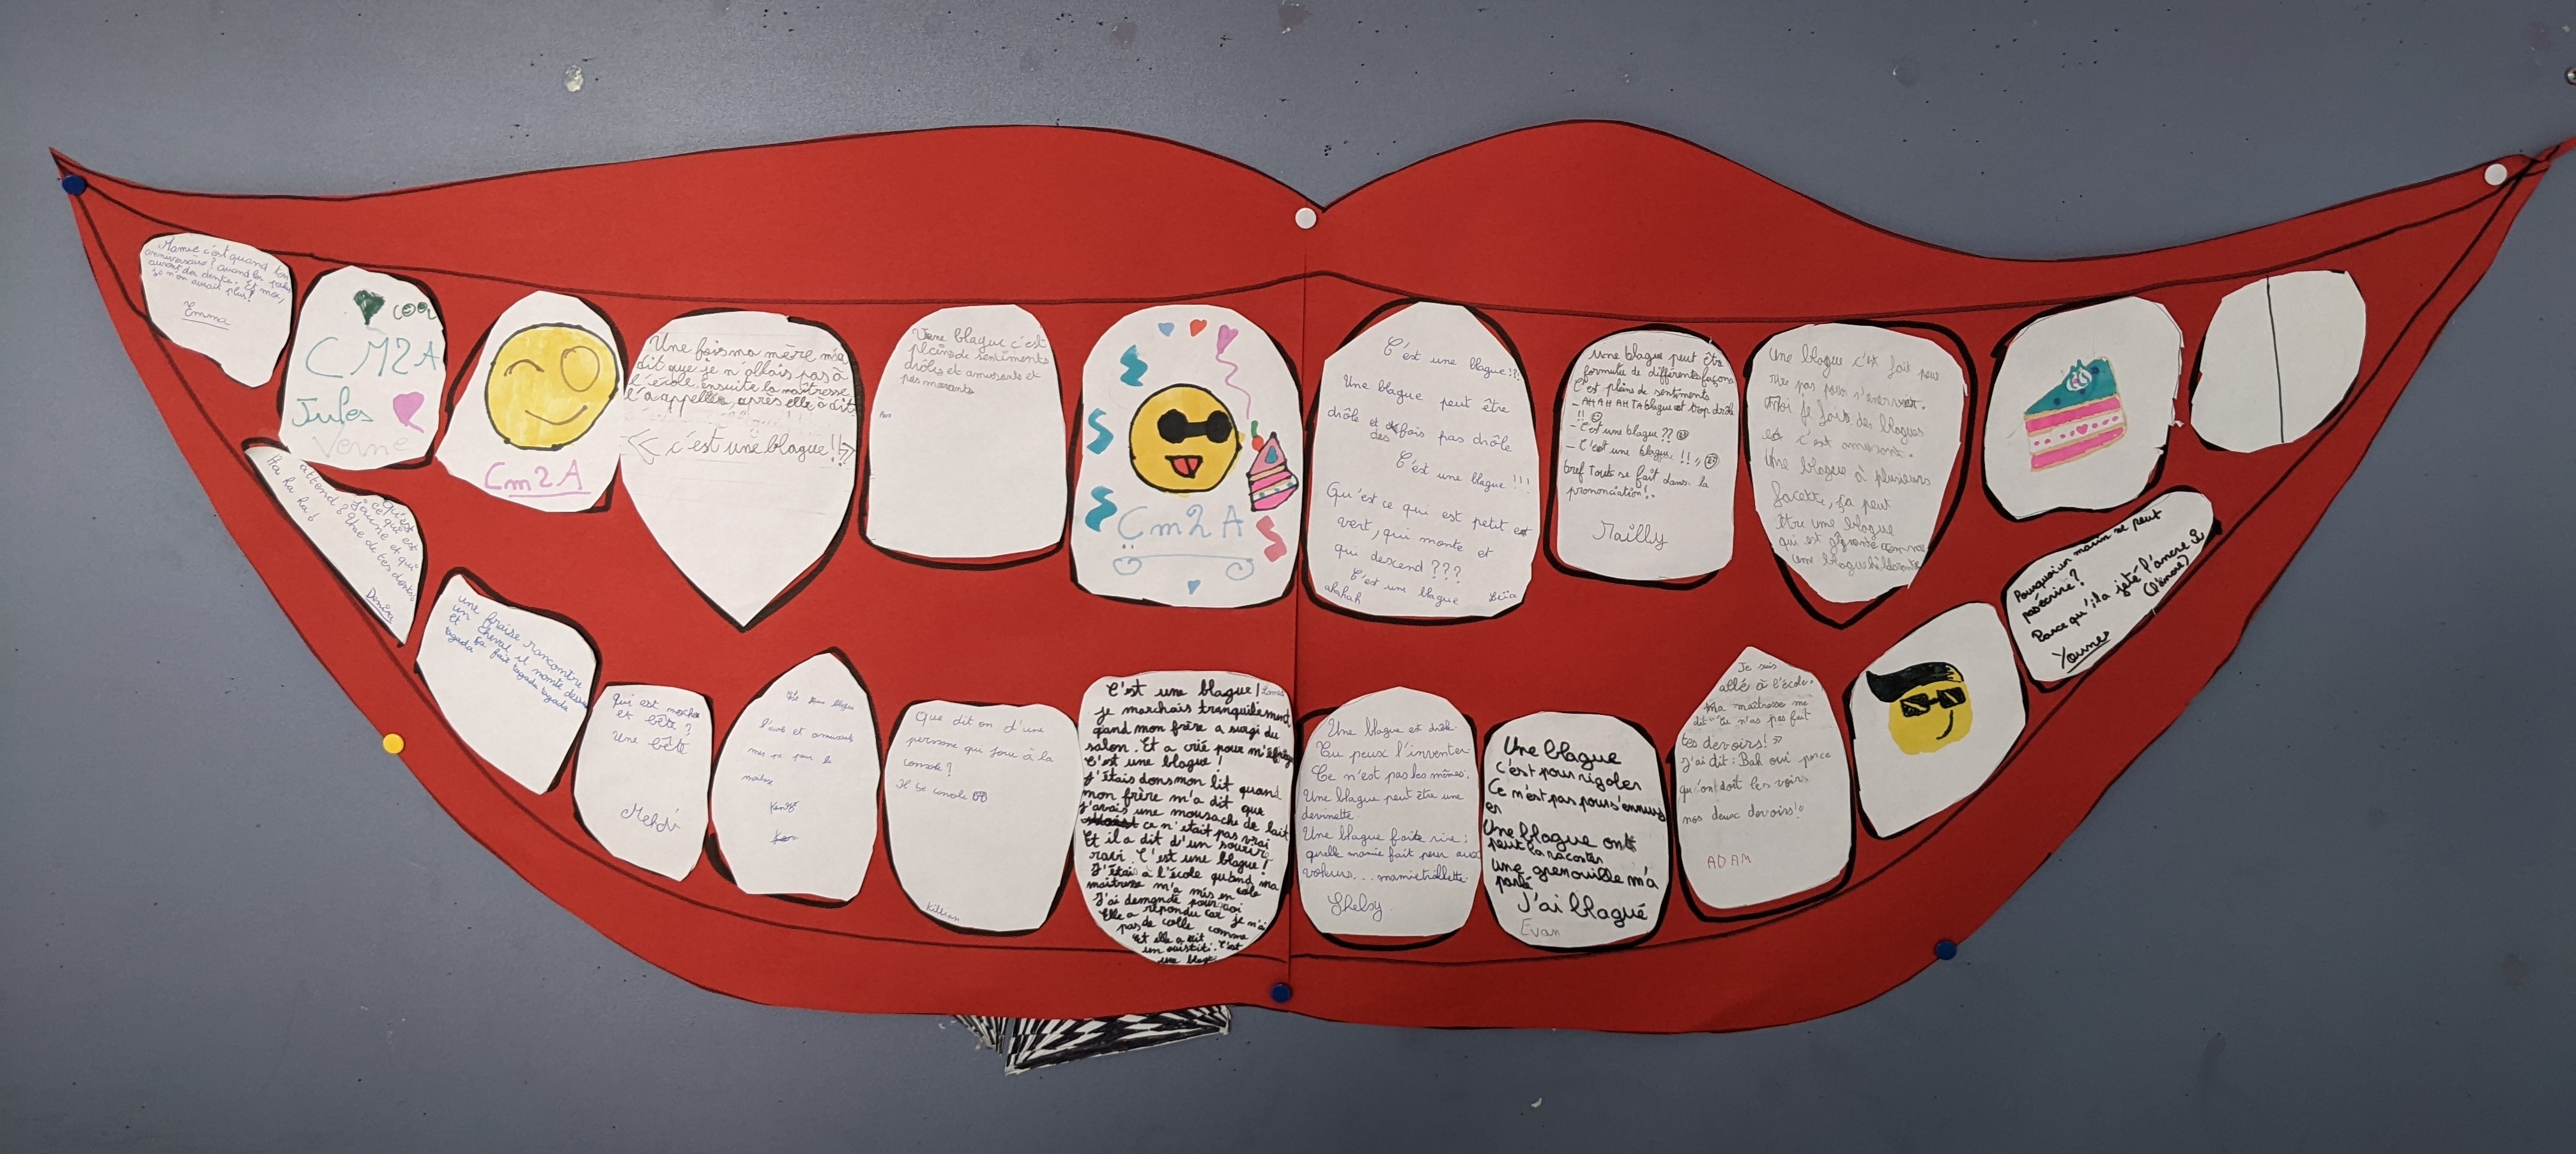 Mamie c'est quand ton
anniversaire? Quand les poules
auront des dents. Et moi,
je n'en aurait plus!
Emma
COOL
CM2A
Jules
Verne
Cm2A
Une fois ma mère m'a
dit que je n'allais pas à
l'école, ensuite la maîtresse
l'a appeller, après elle à dit
<< c'est une blague!! >>
Une blague c'est
pleins de sentiments
drôles et amusants et
pas marants
Cm2A
C'est une blague!?
Une blague peut être
drôle et des fois pas drôle
C'est une blague!!!
Qu'est ce qui est petit et
vert, qui monte et
qui descend???
C'est une blague
ahahah
Leïa
Une blague peut être
formulé de différents façons
C'est pleins de sentiments
- AH AH AH TA blague est trop drôle
!!
- C'est une blague??
- C'est une blague!!
bref Touts se fait dans la
prononciation!
Mailly
Une blague c'est fait pour
rire pas pour s'énerver.
Moi je fais des blagues
et c'est amusant.
Une blague à plusieurs
facette, ça peut
être une blague
qui est gênante comme
une blague hilarante
Qu'est
ce qui est
jaune et qui
attend? Une de tes dents
Ha ha ha ha!
une fraise rancontre
un cheval il monte dessu
et ça fait tagada tagada
tagada
Qui est moche
et bête?
Une bête
Mehdi
une blague
et amusants
mes pour la
Que dit on d'une
persone qui joue à la
console?
Il se console
Killian
C'est une blague!
je marchais tranquilement
quand mon frère a surgi du
salon. Et a crié pour m'éfrayé
C'est une blague!
J'étais dons mon lit quand
mon frère m'a dit que
j'avais une moustache de lait
ce n'était pas vrai
Et il a dit d'un sourir
ravi. C'est une blague!
J'étais à l'école quand ma
maitresse m'a mis en colle
J'ai demande pourquoi
Elle a répondu car je n'ai
pas de colle comme
Et elle a dit
un ouistiti. C'est
une blage
Une blague est drôle
Tu peux l'inventer
Ce n'est pas les mêmes.
Une blague peut être une
devinette
Une blague faite rire:
quelle mamie fait peur aux
voleurs... mamie traillette.
Shelsy.
Une blague
c'est pour rigoler
Ce n'est pas pour s'ennuy
er
Une blague ont
peut la raconter
une grenouille m'a
parlé
J'ai blagué
Evan
Je suis
allé à l'école.
Ma maîtresse me
dit "Tu n'as pas fait
tes devoirs!"
J'ai dit: Bah oui parce
qu'on doit les voirs
nos deux devoirs!
ADAM
Pourquoi un marin ne peut
pas écrire?
Parce qu'il a jeté l'ancre
(l'encre)
Younes